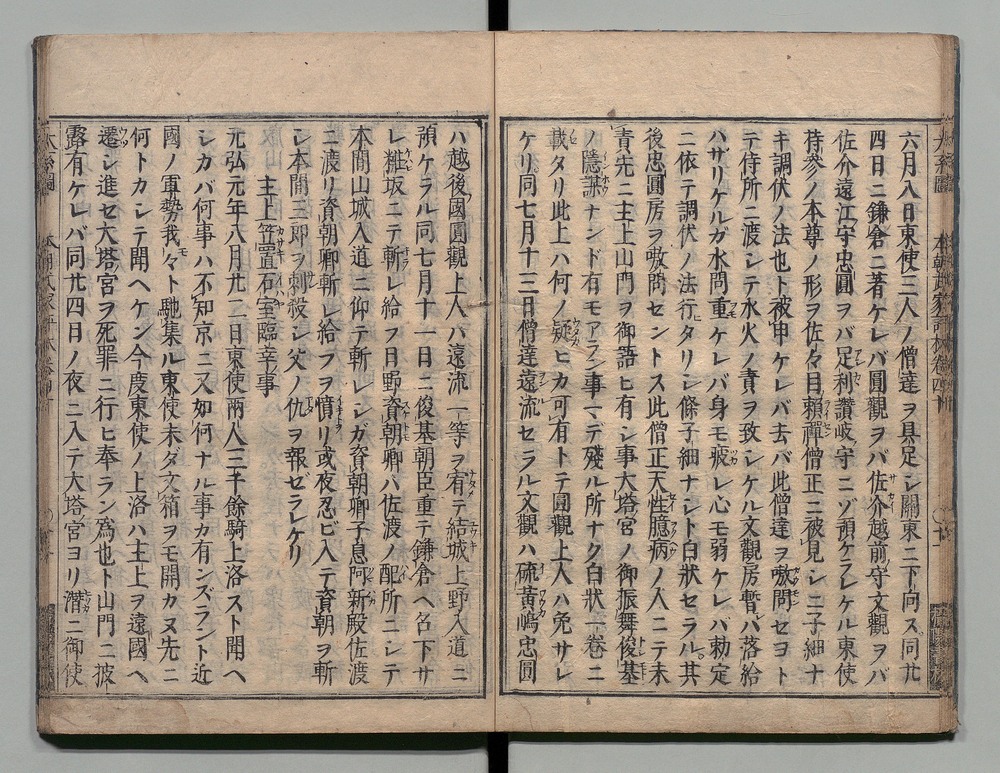 六月八日東使三人ノ僧達ヲ具足シ關東ニ下向ス同廿
四日ニ鎌倉ニ著ケレバ圓觀ヲバ佐介越前守文觀ヲバ
佐介遠江守忠圓ヲバ足利讃岐守ニゾ預ケラレケル東使
持參ノ本尊ノ形ヲ佐々目頼禪僧正ニ被見シニ子細ナ
キ調伏ノ法也ト被申ケレバ去バ此僧達ヲ嗷問セヨト
テ侍所ニ渡シテ水火ノ責ヲ致シケル文觀房暫ハ落給
ハザリケルガ水問重ケレバ身モ疲レ心モ弱ケレバ勅定
ニ依テ調伏ノ法行タリシ條子細ナシト白狀セラル其
後忠圓房ヲ嗷問セントス此僧正天性臆病ノ人ニテ未
責先ニ主上山門ヲ御語ヒ有シ事大塔宮ノ御振舞俊基
ノ隱謀ナンド有モアラン事マデ殘ル所ナク白狀一卷ニ
載タリ此上ハ何ノ疑ヒカ可有トテ圓觀上人ハ免サレ
ケリ同七月十三日僧達遠流セラル文觀ハ硫黄嶋忠圓
ハ越後國圓觀上人ハ遠流一等ヲ宥テ結城上野入道ニ
預ケラル同七月十一日ニ俊基朝臣重テ鎌倉ヘ召下サ
レ粧坂ニテ斬レ給フ日野資朝卿ハ佐渡ノ配所ニシテ
本間山城入道ニ仰テ斬レシガ資朝卿子息阿新殿佐渡
ニ渡リ資朝卿斬レ給フヲ憤リ或夜忍ビ入テ資朝ヲ斬
シ本間三郎ヲ刺殺シ父ノ仇ヲ報セラレケリ
主上笠置石室臨幸事
元弘元年八月廿二日東使兩人三千餘騎上洛スト聞ヘ
シカバ何事ハ不知京ニ又如何ナル事カ有ンズラント近
國ノ軍勢我々ト馳集ル東使未ダ文箱ヲモ開カヌ先ニ
何トカシテ聞ヘケン今度東使ノ上洛ハ主上ヲ遠國ヘ
遷シ進セ大塔宮ヲ死罪ニ行ヒ奉ラン爲也ト山門ニ披
露有ケレバ同廿四日ノ夜ニ入テ大塔宮ヨリ潛ニ御使